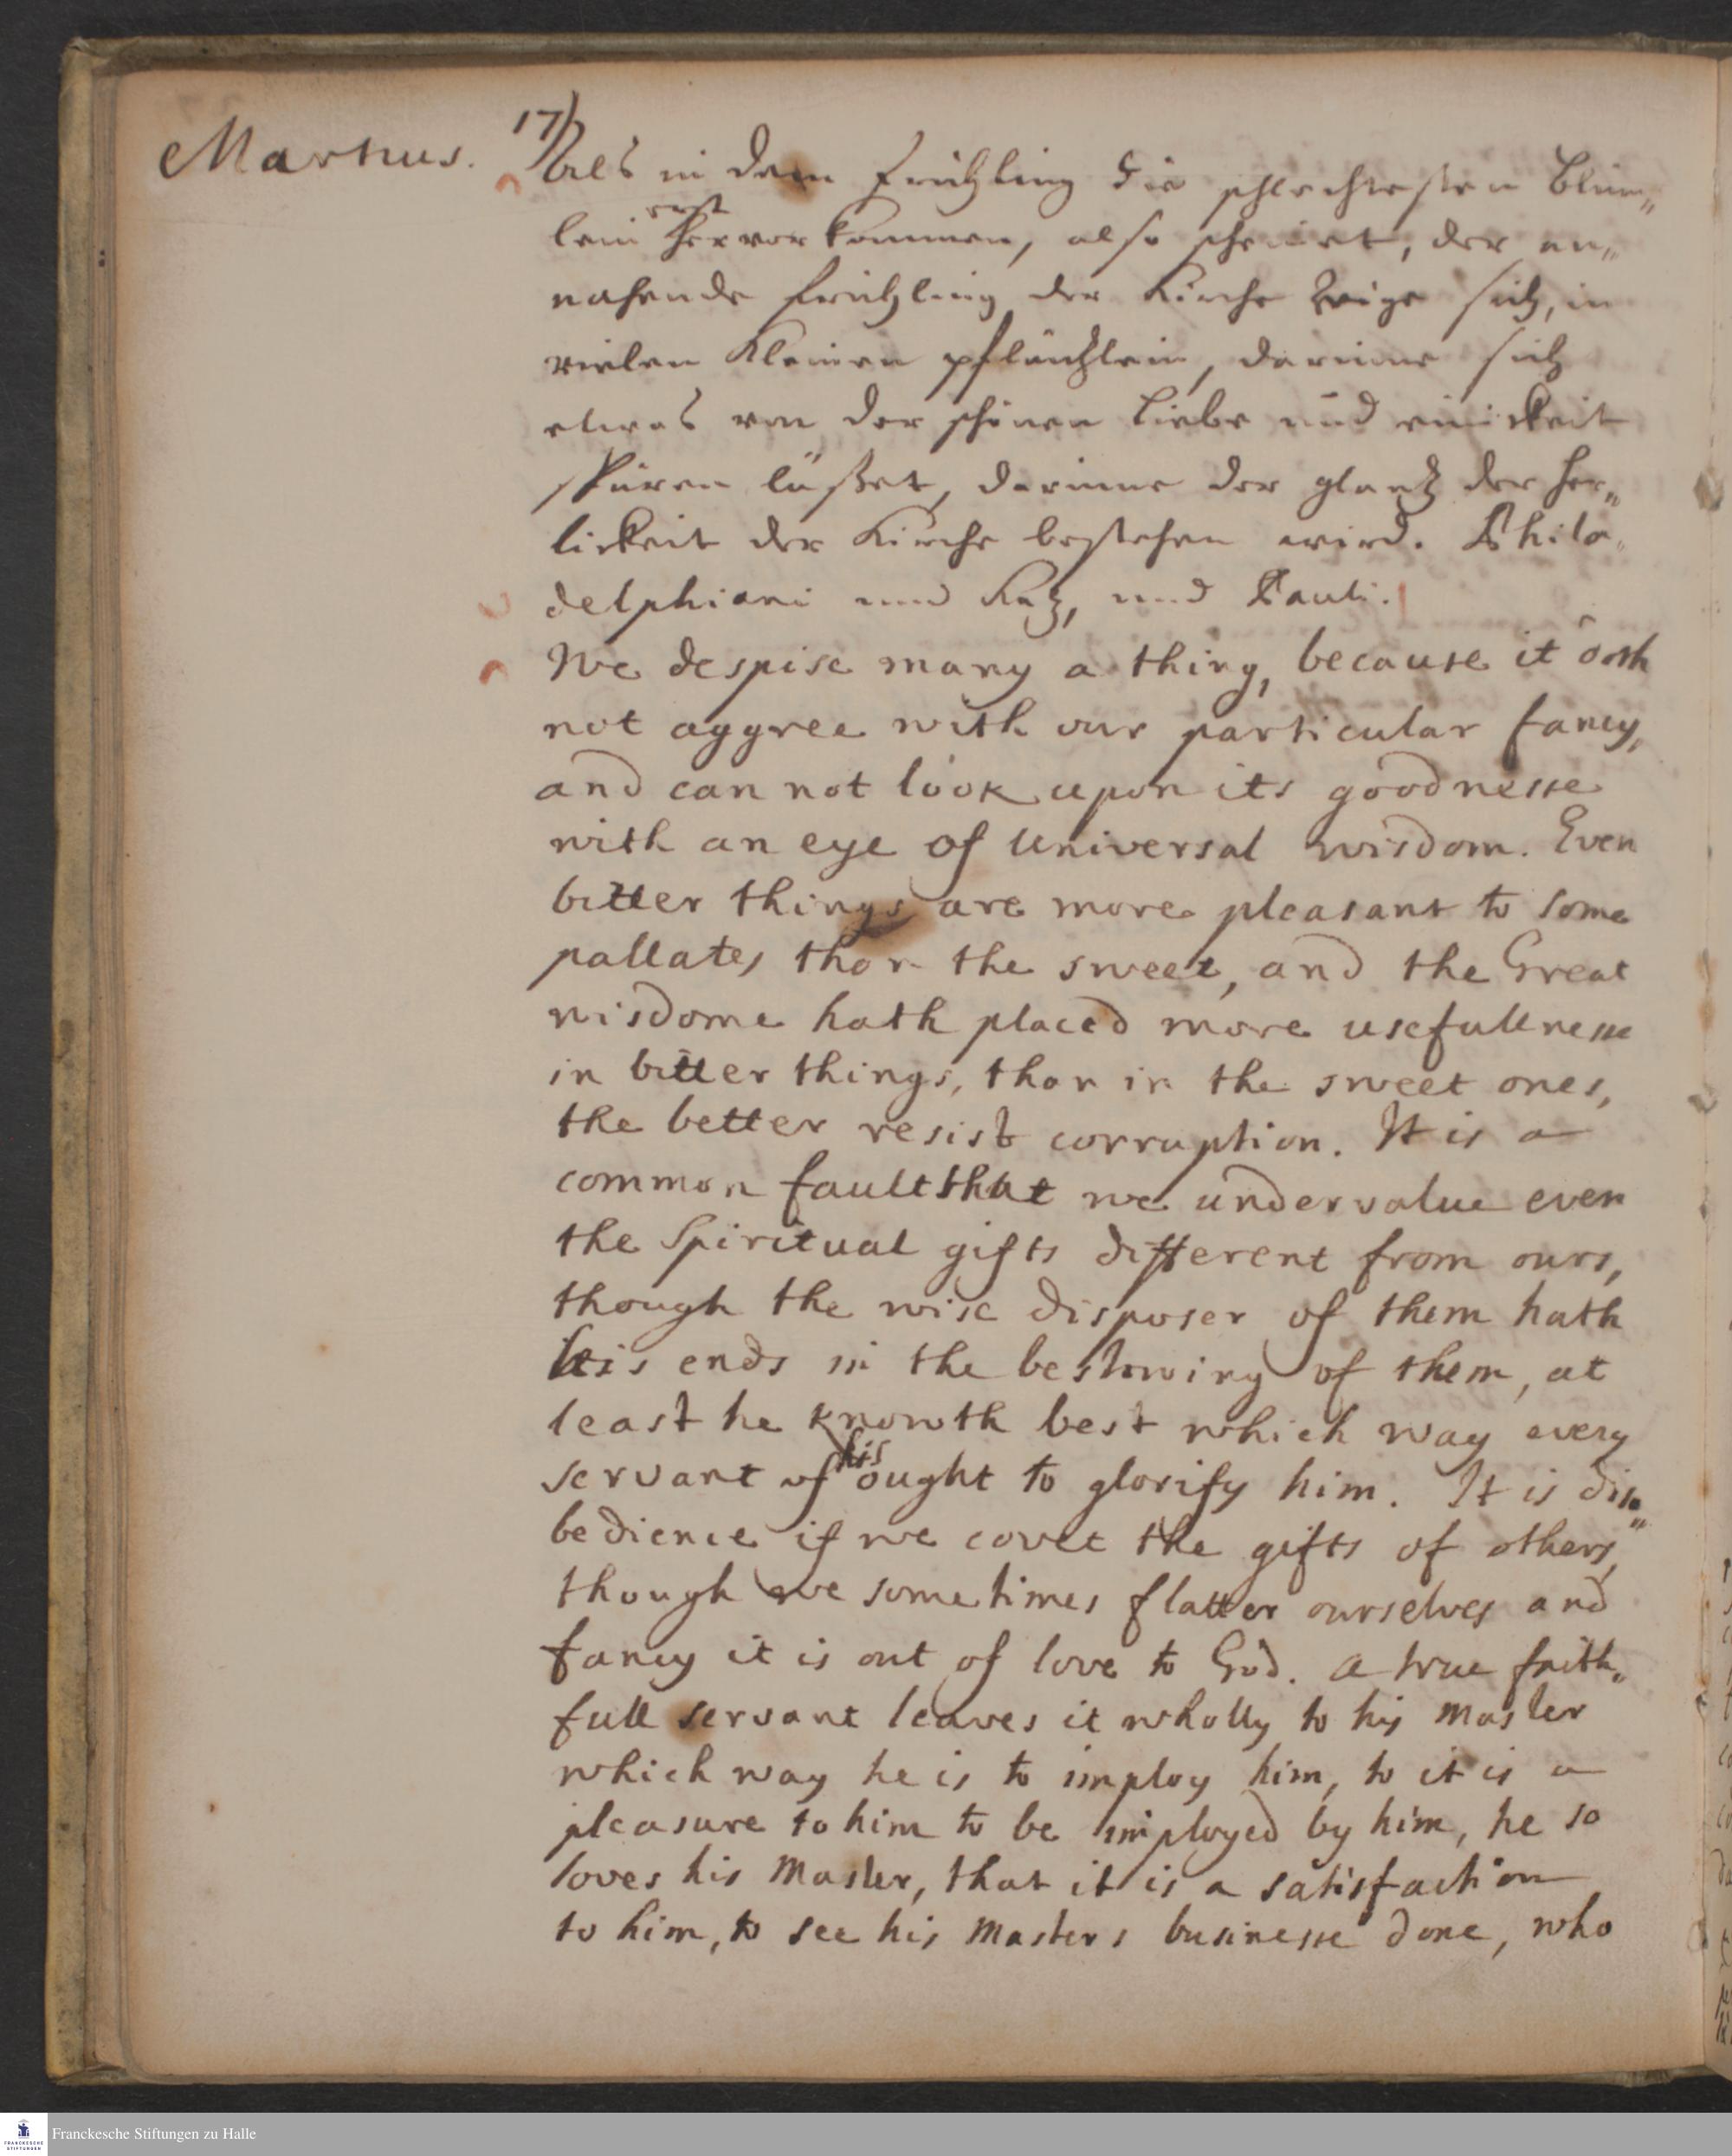 Martius.
17)
Als in dem Frühling die schlechtesten Blüm„
lein erst hervor kommen, also scheinet, der an„
nahende Frühling der Kirche Zeige sich, in
vielen Kleinen pfläntzlein, darinne sich
etwas von der schönen Liebe und einickeit
spüren läßet, darinne der glantz der Her„
lickeit der Kirche bestehen wird. Phila„
delphiani und Katz, und Pauli.
We despise many a thing, because it doth
not aggree with our particular fancy,
and can not look upon its goodnesse
with an eye of Universal wisdom. Even
bitter things are more pleasant to some
pallates than the sweet, and the Great
wisdome hath placed more usefullnesse
in bitter things, than in the sweet ones,
the better resist corruption. It is a
common fault that we undervalue even
the Spiritual gifts different from ours,
though the wise disposer of them hath
his ends in the bestowing of them, at
least he knowth best which way every
servant of his ought to glorify him. It is diso„
bedience if we covet the gifts of others,
though we sometimes flatter ourselves and
fancy it is out of love to God. a true faith„
full servant leaves it wholly to his Master
which way he is to imploy him, to it is a
pleasure to him to be imployed by him, he so
loves his Master, that it is a satisfaction
to him, to see his Masters businesse done, who
Franckesche Stiftungen zu Halle
FRANCKESCHE
STIFTUNGEN